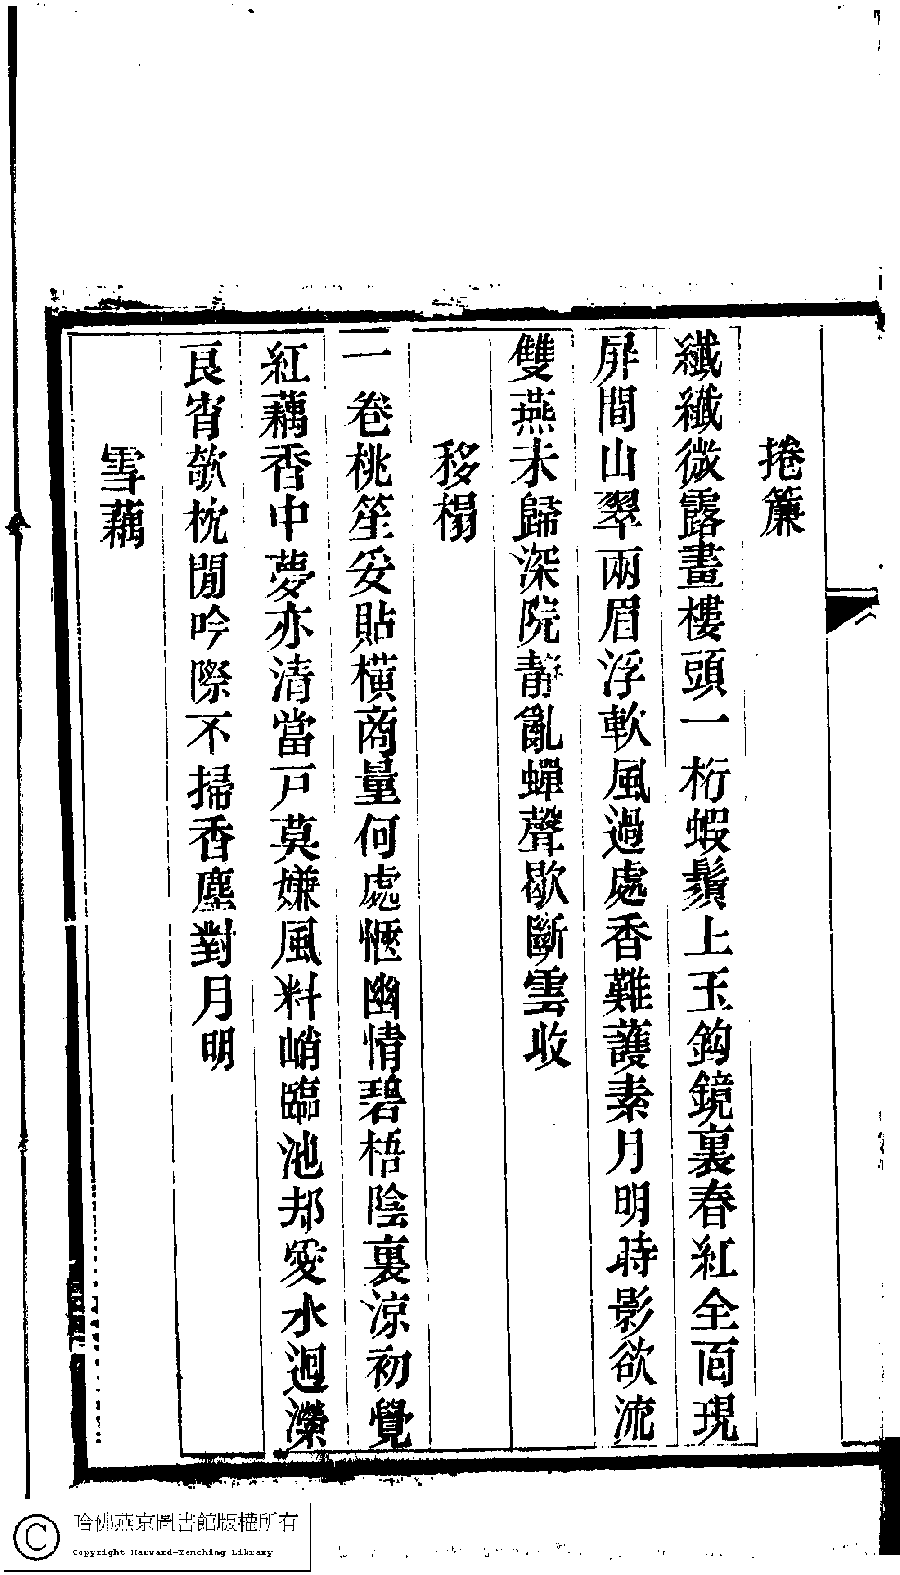 捲簾
纖纖微露畫樓頭一桁蝦鬚上玉鈎鏡裏春紅全面現
屏間山翠兩眉浮軟風過處香難護素月明時影欲流
雙燕未歸深院靜亂蟬聲歇斷雲收
移榻
一卷桃笙妥貼橫商量何處愜幽情碧梧陰裏涼初覺
紅藕香中夢亦清當戸莫嫌風料峭臨池却愛水迴瀠
良宵欹枕閒吟際不掃香塵對月明
雪藕
哈佛燕京圖書館版權所有
Copyright Harvard-Yenching Library